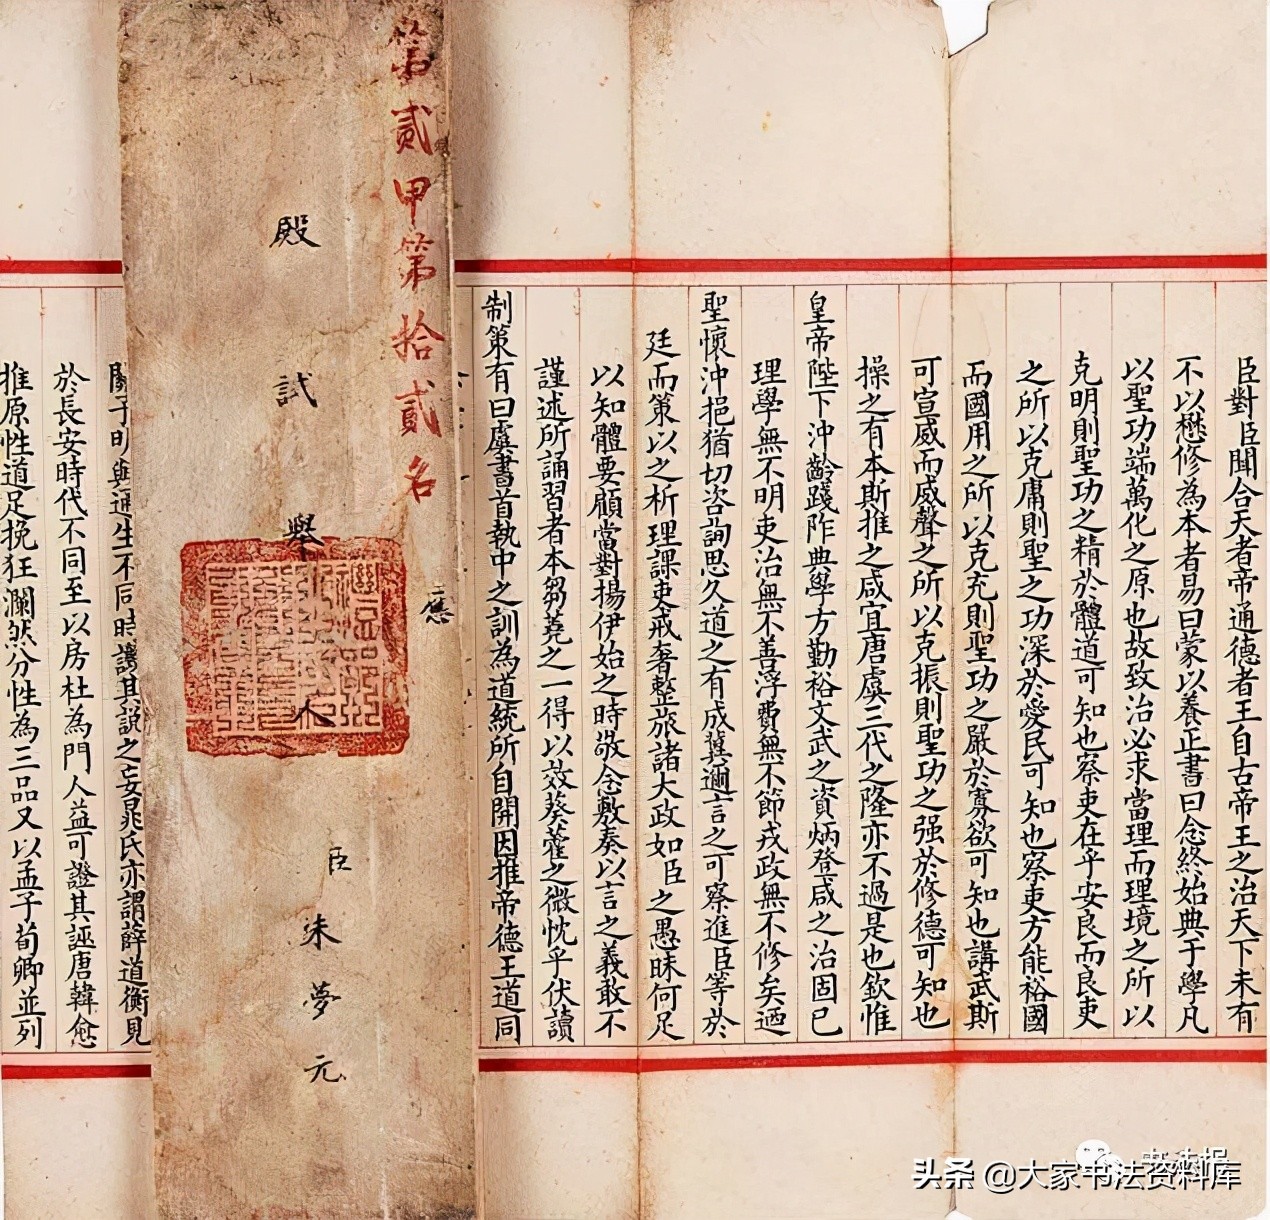 臣對臣聞合天者帝通德者王自古帝王之治天下未有
不以懋修為本者易曰蒙以養正書曰念終始典于學凡
以聖功端萬化之原也故致治必求當理而理境之所以
克明則聖功之精於體道可知也察吏在乎安良而良吏
之所以克庸則聖之功深於愛民可知也察吏方能裕國
而國用之所以克充則聖功之嚴於寡欲可知也講武斯
可宣威而威聲之所以克振則聖功之强於修德可知也
操之有本斯推之咸宜唐虞三代之隆亦不過是也欽惟
皇帝陛下沖齡踐阼典學方勤裕文武之資炳登咸之治固已
理學無不明吏治無不善浮費無不節戎政無不修矣迺
聖懷沖挹猶切咨詢思久道之有成冀邇言之可察進臣等於
廷而策以之析理課吏戒奢整旅諸大政如臣之愚昧何足
以知體要顧當對揚伊始之時敬念敷奏以言之義敢不
謹述所誦習者本芻蕘之一得以效葵藿之微忱乎伏讀
制策有曰虞書首執中之訓為道統所自開因推帝德王道同
第貳甲第拾貳名
應
殿試舉人
臣朱夢元
關子明與通生不同時謂其說之妄晁氏亦謂薛道衡見
於長安時代不同至以房杜為門人益可證其誣唐韓愈
推原性道足挽狂瀾然分性為三品又以孟子荀卿並列
头条 @大家书法资料库